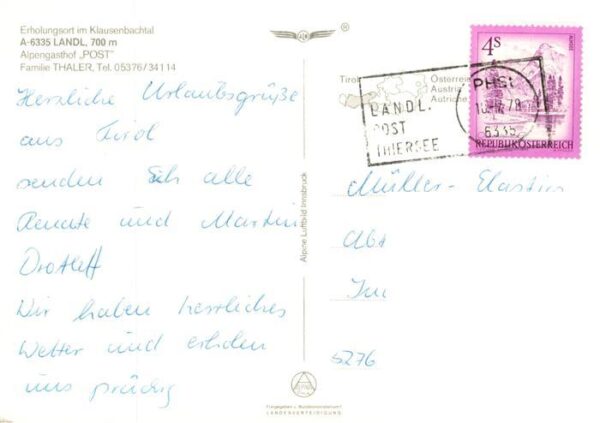 Erholungsort im Klausenbachtal
A-6335 LANDL, 700 m
Alpengasthof „POST"
Familie THALER, Tel. 05376/34114
Herzliche Urlaubsgrüße
aus Tirol
senden Euch alle
Renate und Martin
Wir haben herrliches
Wetter und erholen
uns prächtig
Alpine Luftbild Innsbruck
Freigegeben v. Bundesministerium f.
LANDESVERTEIDIGUNG
Tirol
Österreich
Austria
Autriche
LANDL.
POST
THIERSEE
6335
4S
REPUBLIK ÖSTERREICH
Müller-
Abt
5276